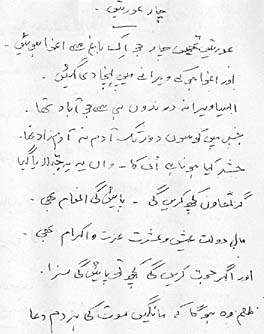 چار عورتیں -
عورتیں تھیں چار جو اک باغ سے اغوا ہوئیں -
اور اغوا ہو کے ویرانے میں پہنچا دی گئیں -
ایسا ویرانہ درندوں ہی سے جو آباد تھا -
جس میں کوسوں دور تک آدم نہ آدم زاد تھا -
حشر کیا ہونا ہے اُن کا - واں یہ بتلایا گیا
گر تعاون کچھ کریں گی - پائیں گی انعام بھی -
مال و دولت عیش و عشرت عزت و اکرام بھی -
اور اگر حجت کریں گی کچھ تو پائیں گی سزا -
ظلم وہ ہوگا کہ مانگیں موت کی ہر دم دعا